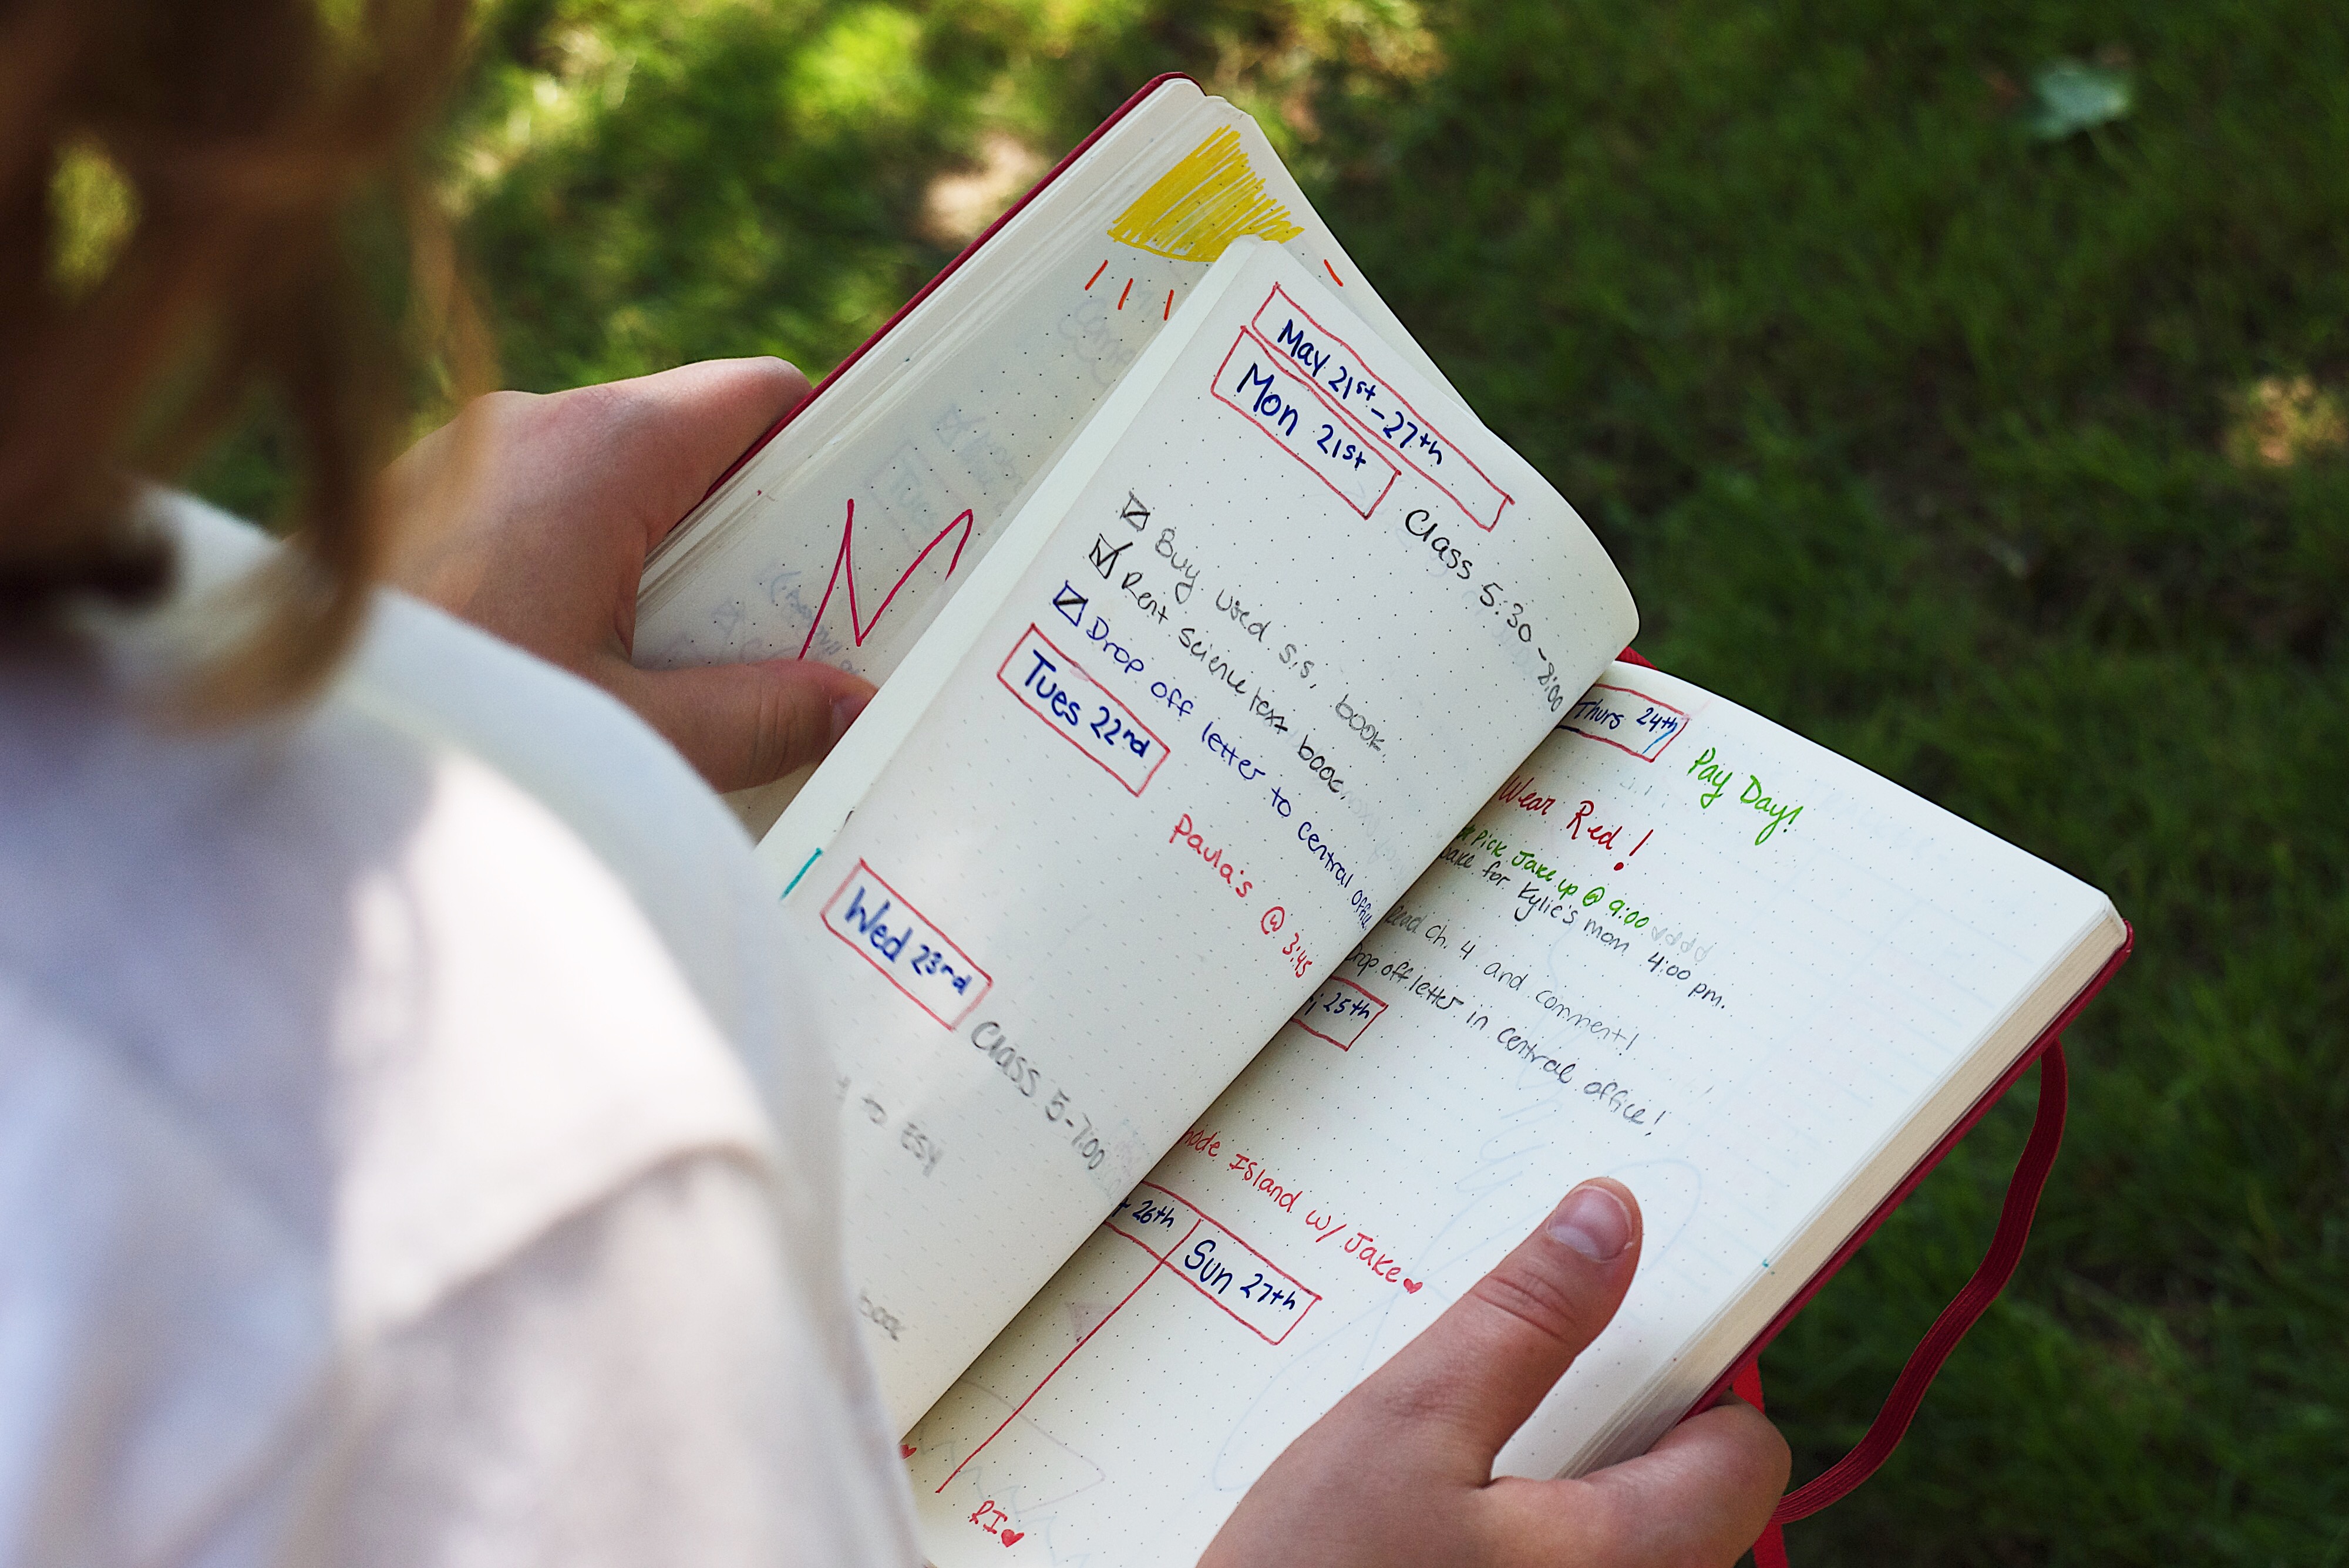 May 21st-27th
Mon 21st
Class 5:30-8:00
Buy used s.s. book.
Rent science text book.
Drop off letter to central office
Tues 22nd
Paula's @ 3:45
Wed 23rd
Class 5-7:00
to ESY
book
Thurs 24th
Pay Day!
Wear Red!
Pick Jake up @ 9:00
for Kylie's mom 4:00 pm.
Read Ch. 4 and comment!
Drop off letter in central office!
25th
Island w/ Jake
26th
Sun 27th
RI